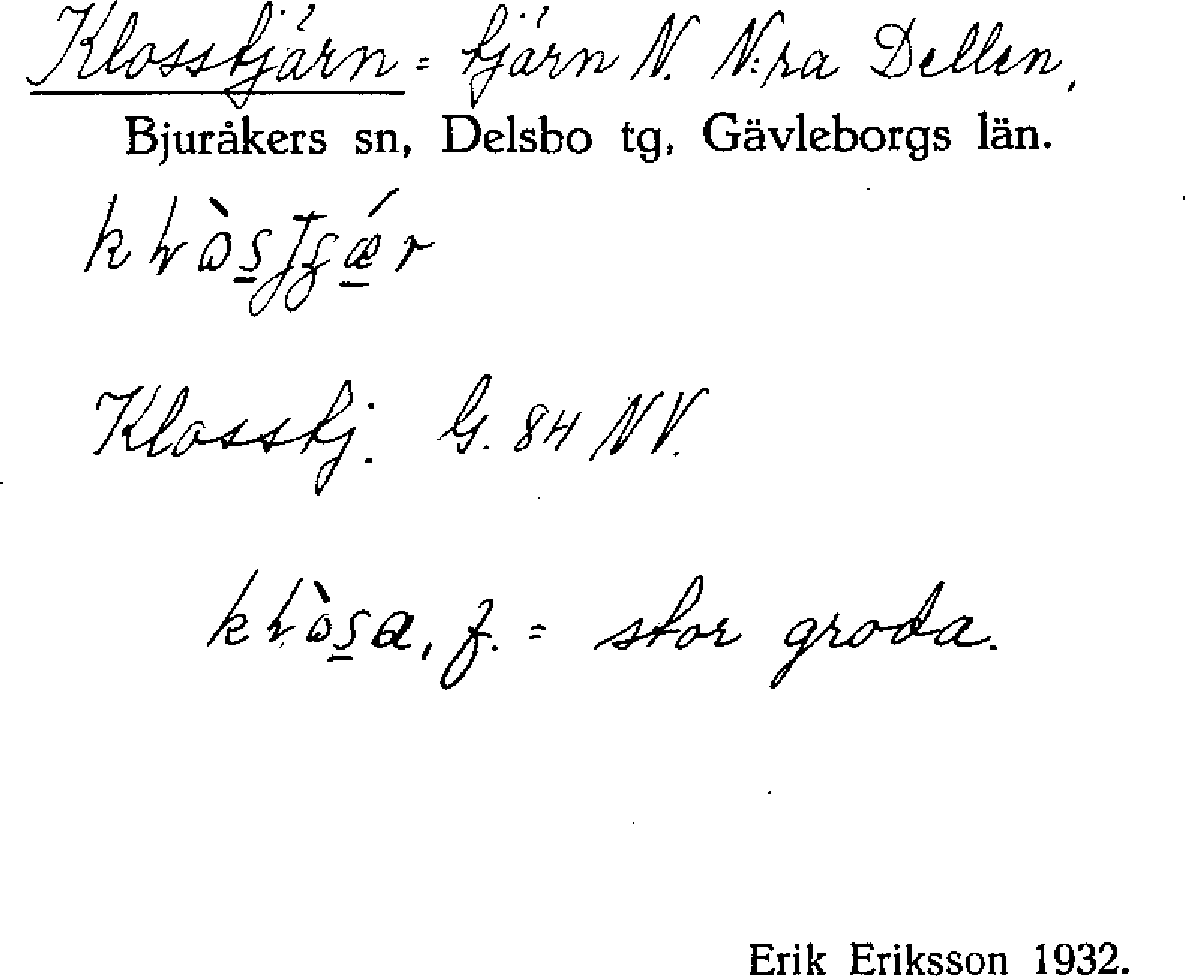 Klosstjärn = tjärn N. N:ra Dellen,
Bjuråkers sn, Delsbo tg, Gävleborgs län.
Klosstj. G. 84 NV.
f. = stor groda.
Erik Eriksson 1932.